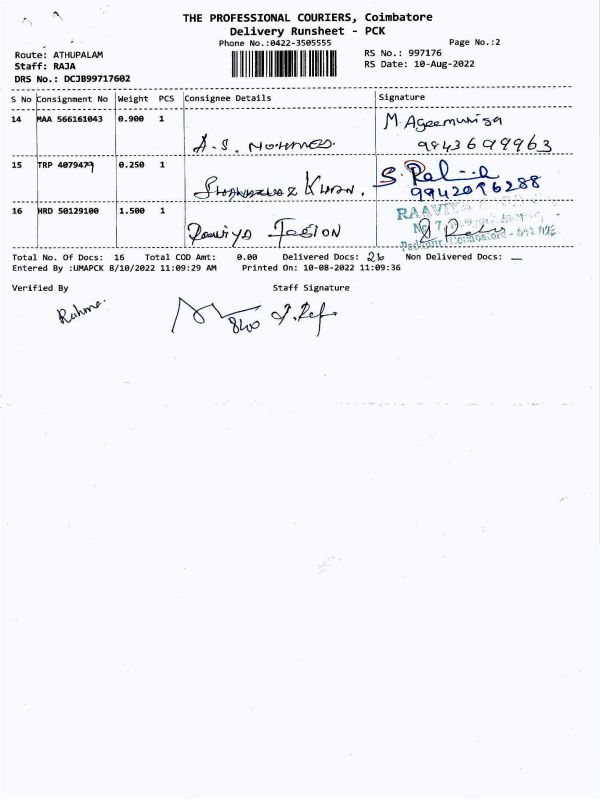 THE PROFESSIONAL COURIERS, Coimbatore
Delivery Runsheet - PCK
Phone No.:0422-3505555 Page No.:2
Route: ATHUPALAM RS No.: 997176
Staff: RAJA RS Date: 10-Aug-2022
DRS No.: DCJB99717602
S No Consignment No Weight PCS Consignee Details Signature
14 MAA 566161043 0.900 1 A.S. MOHAMED. M. Ageemunisa
9843699963
15 TRP 4079479 0.250 1 Khan. S.
9942096288
16 HRD 50129100 1.500 1 Raaviya Fasion RAAVIYA
No 7,
Coimbatore - 641
Total No. Of Docs: 16 Total COD Amt: 0.00 Delivered Docs: 26 Non Delivered Docs: —
Entered By :UMAPCK 8/10/2022 11:09:29 AM Printed On: 10-08-2022 11:09:36
Verified By Staff Signature
Rahma.